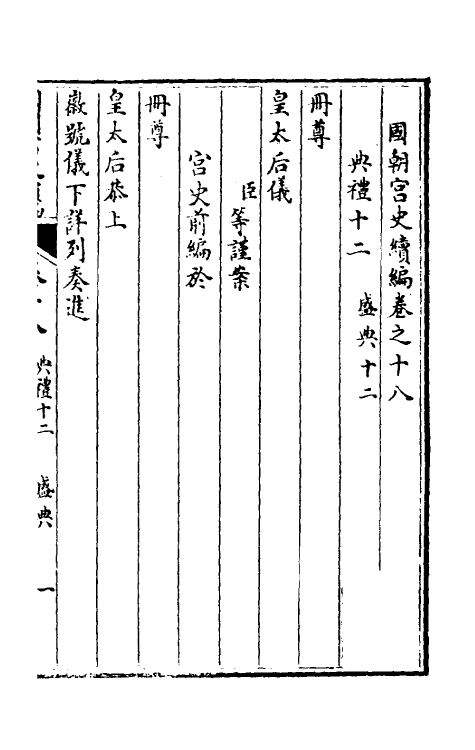 國朝宮史續編卷之十八
典禮十二　盛典十二
冊尊
皇太后儀
臣等謹案
宮史前編於
冊尊
皇太后恭上
徽號儀下詳列奏進
典禮十二　盛典　一